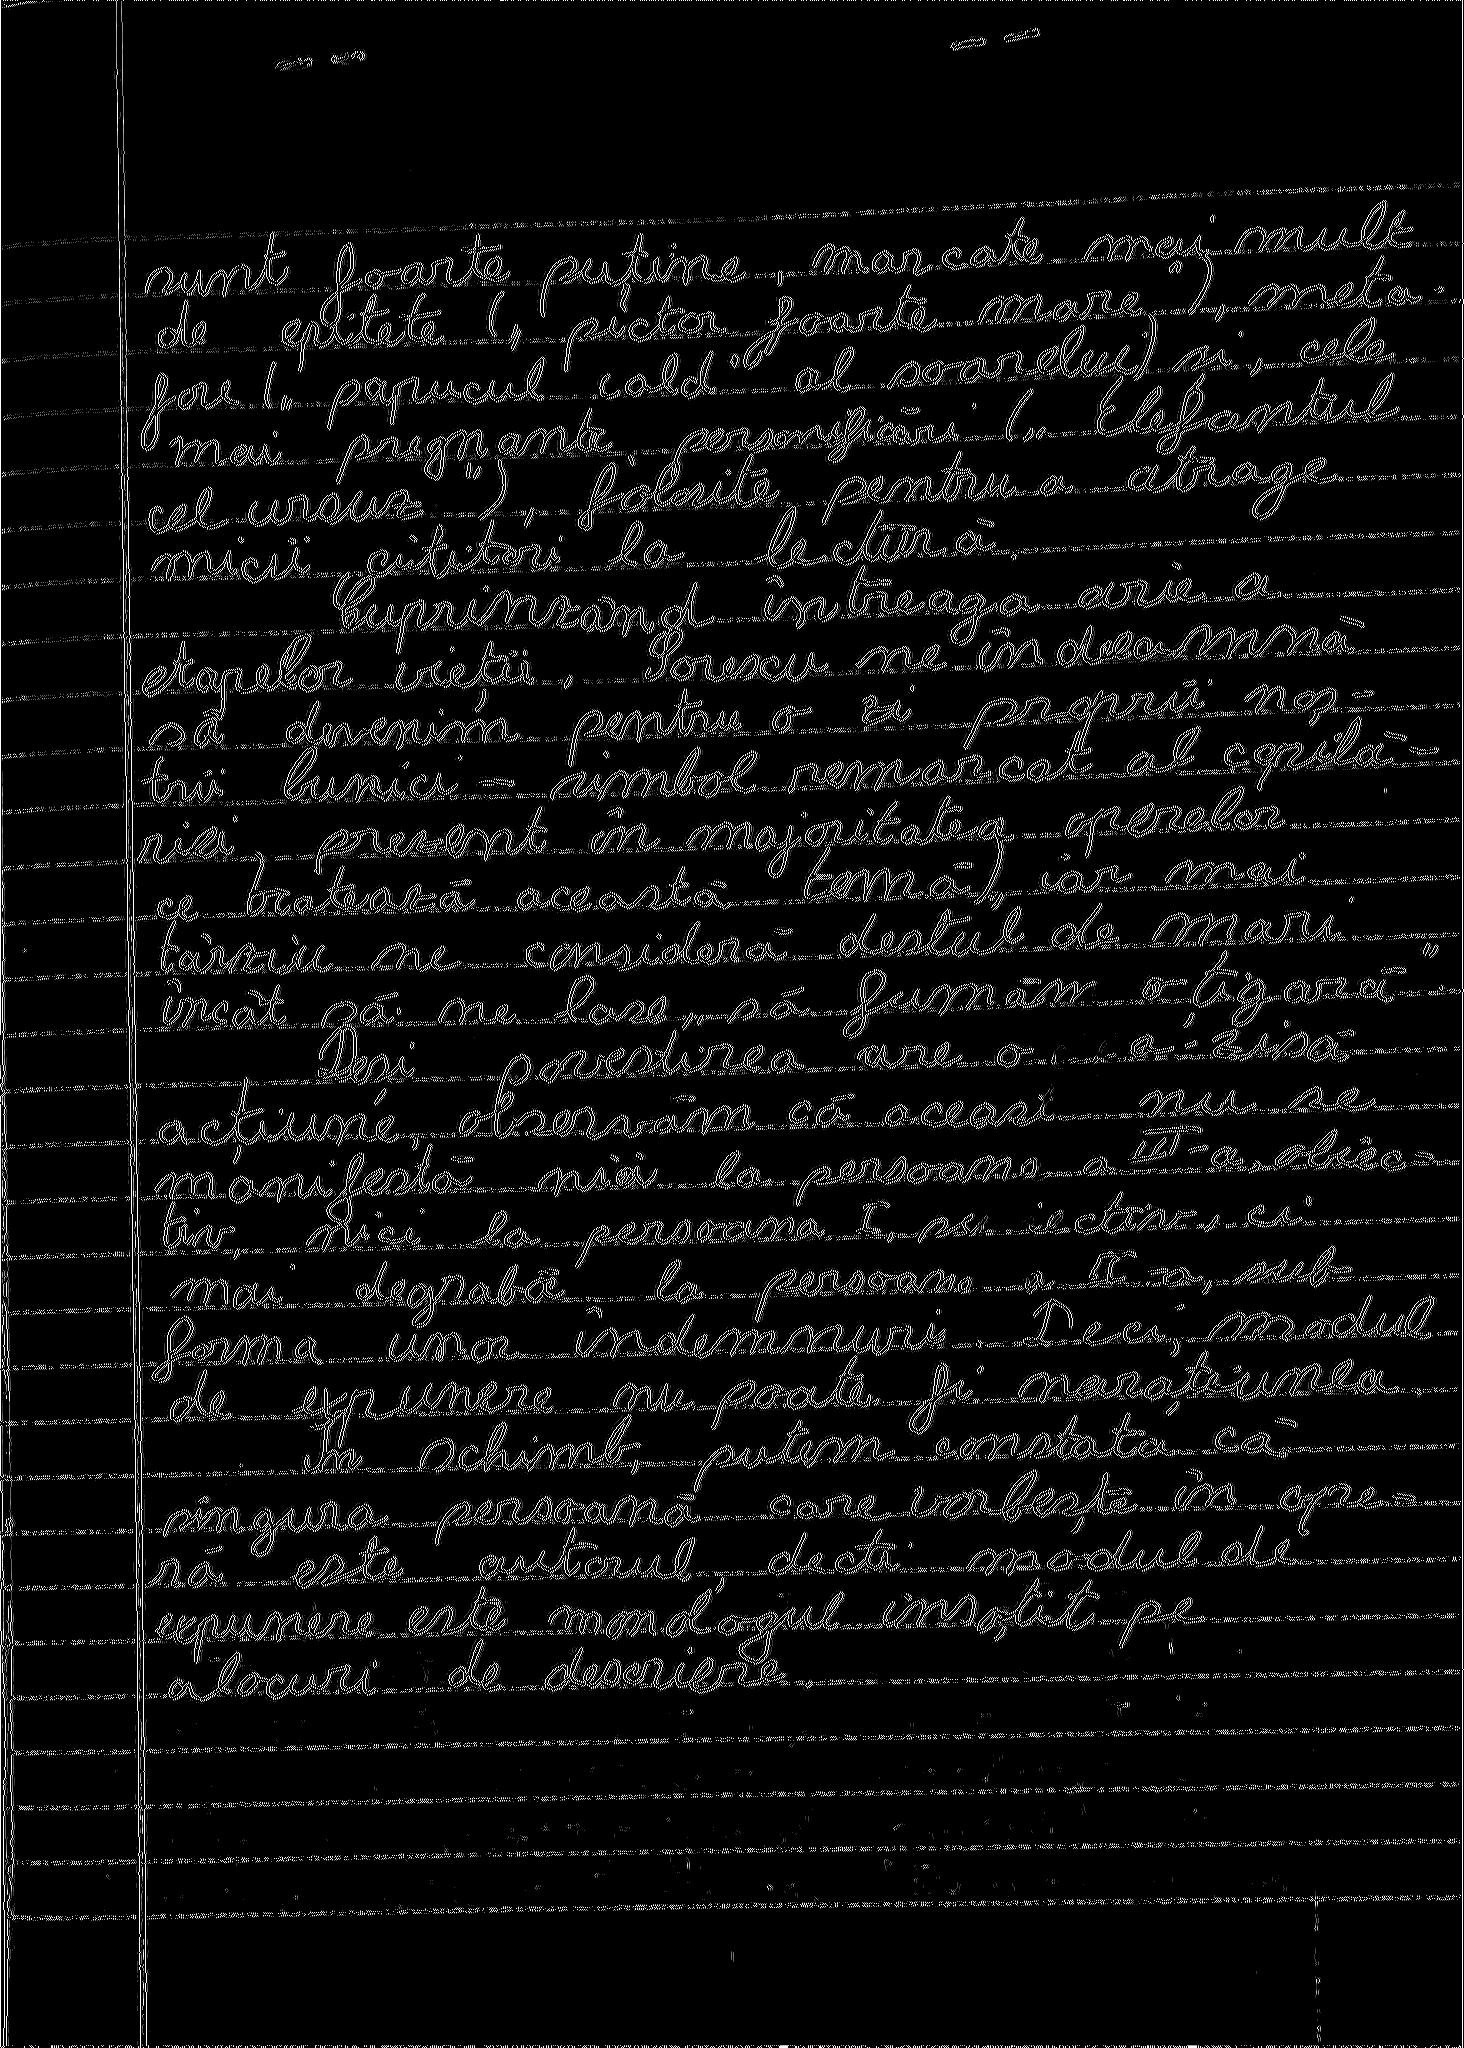 sunt foarte puține, marcate mai mult
de epitete („pictor foarte mare”), meta-
fore („papucul cald” al soarelui) și, cele
mai pregnante, personificări („Elefantul
cel ursuz”), folosite pentru a atrage
micii cititori la lectură.
Cuprinzând întreaga arie a
etapelor vieții, Sorescu ne îndeamnă
să devenim pentru o zi proprii noș-
trii bunici - simbol remarcat al copilă-
riei, prezent în majoritatea operelor
ce tratează această temă), iar mai
târziu ne consideră destul de mari
încât să ne lase „să fumăm o țigară”.
Deși povestirea are o așa-zisă
acțiune, observăm că aceasi nu se
manifestă nici la persoana a III-a, obiec-
tiv, nici la persoana I, subiectiv, ci
mai degrabă la persoana a II-a, sub
forma unor îndemnuri. Deci, modul
de expunere nu poate fi narațiunea.
În schimb, putem constata că
singura persoană care vorbește în ope-
ră este autorul, deci modul de
expunere este monologul însoțit pe
alocuri de descriere.